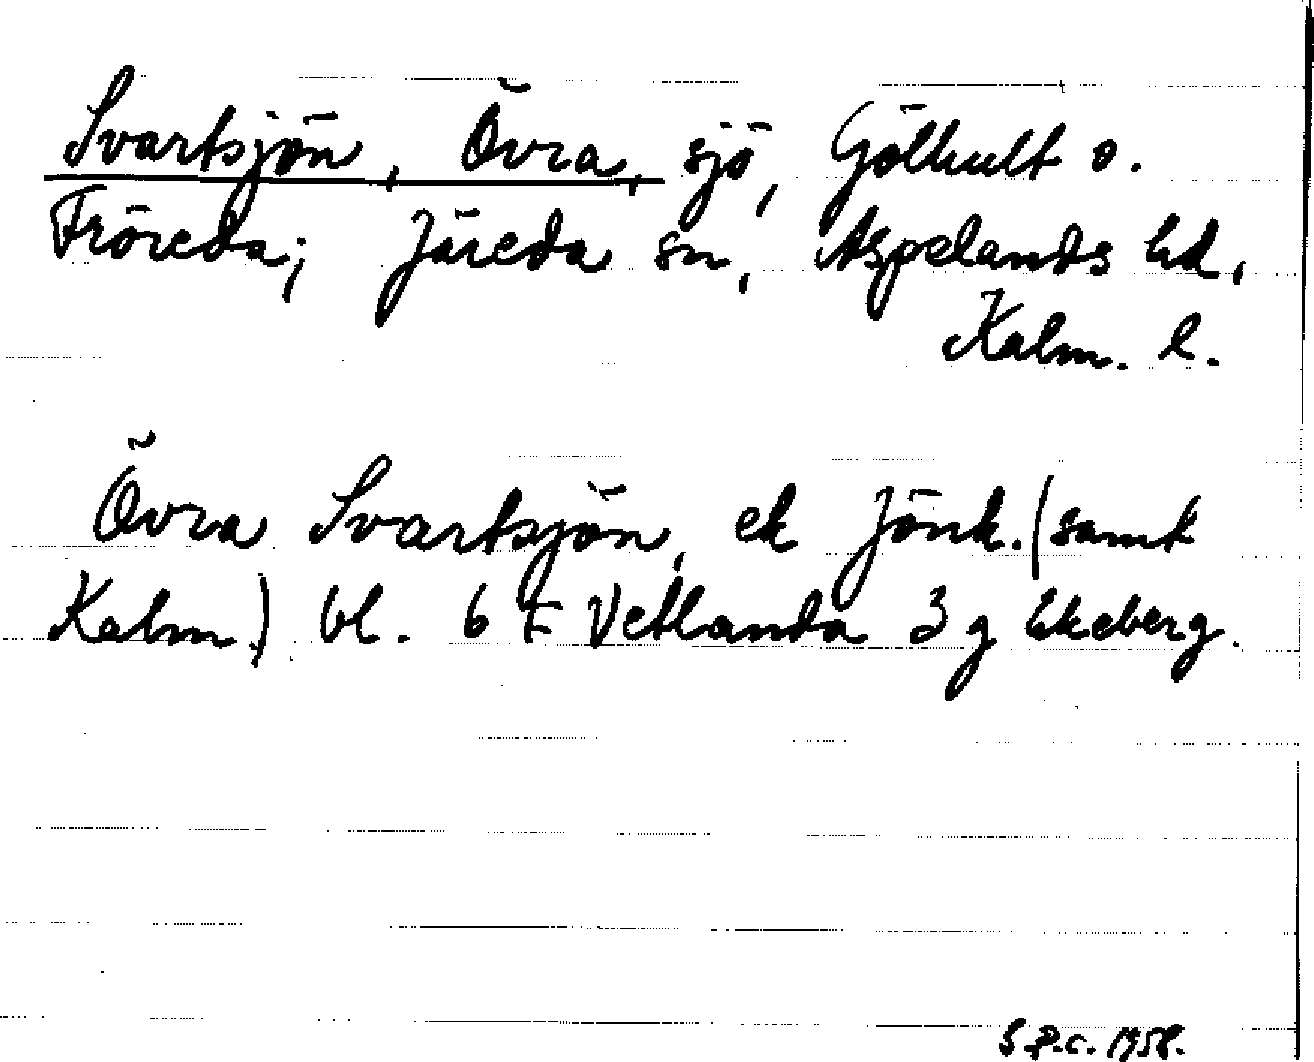 Svartsjön, Övra, sjö, Gölhult o.
Fröreda; Järeda sn, Aspelands hd,
Kalm. l.
Övra Svartsjön, ek Jönk. (samt
Kalm.) bl. 6 F Vetlanda 3 g Ekeberg.
S.P.C. 1958.